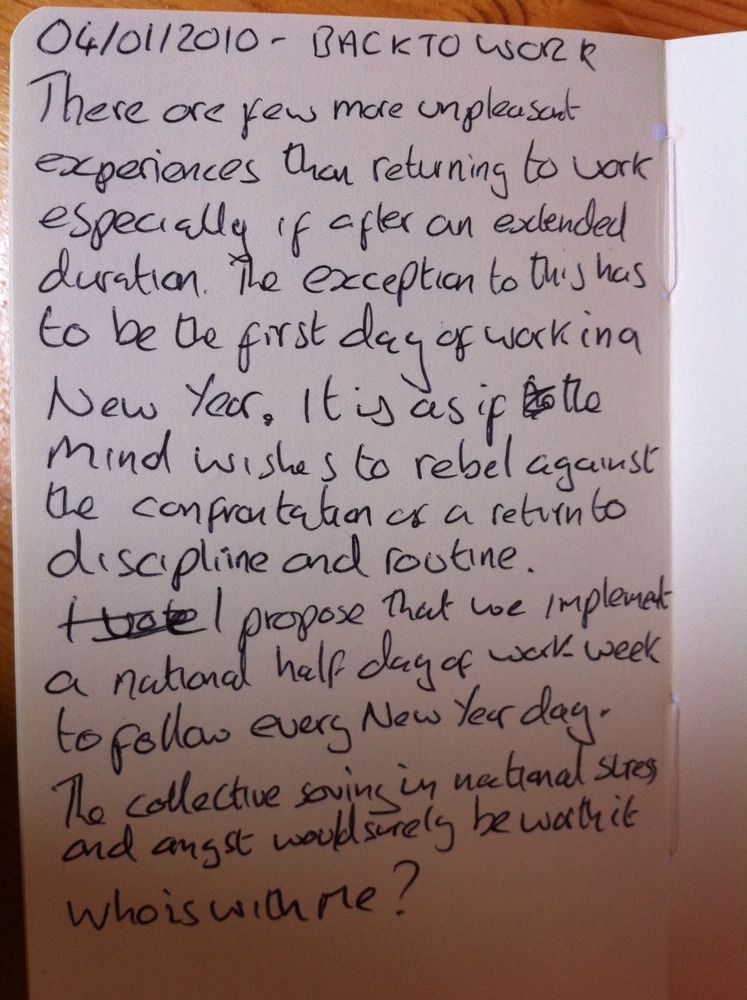 04/01/2010 - BACK TO WORK
There are few more unpleasant
experiences than returning to work
especially if after an extended
duration. The exception to this has
to be the first day of work in a
New Year. It is as if the
Mind wishes to rebel against
the confrontation of a return to
discipline and routine.
I vote I propose that we implement
a national half day of work week
to follow every New Year day.
The collective saving in national stress
and angst would surely be worth it
who is with me?